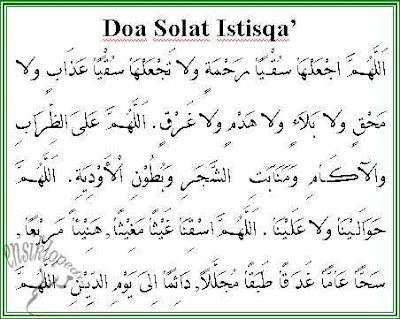 Doa Solat Istisqa’
اَللَّهُمَّ اجْعَلْهَا سُقْيًا رَحْمَةٍ وَلا تَجْعَلْهَا سُقْيًا عَذَابٍ وَلا
مَحْقٍ وَلا بَلاَءٍ وَلا هَدْمٍ وَلا غَرْقٍ. اَللَّهُمَّ عَلىَ الظِّرَابِ
وَالآكَامِ وَمَنَابَتِ الشَّجَرِ وَبُطُوْنِ اْلأَوْدِيَةِ. اَللَّهُمَّ
حَوَالَيْنَا وَلا عَلَيْنَا. اَللَّهُمَّ اسْقِنَا غَيْثًا مُغِيْثًا, هَنِيْئًا مَرِيْعًا,
سَحًّا عَامًّا غَدَقًا طَبَقًا مُجَلَّلاً, دَائِمًا اِلىَ يَوْمِ الدِّيْنِ. اَللَّهُمَّ
ensiklopedia